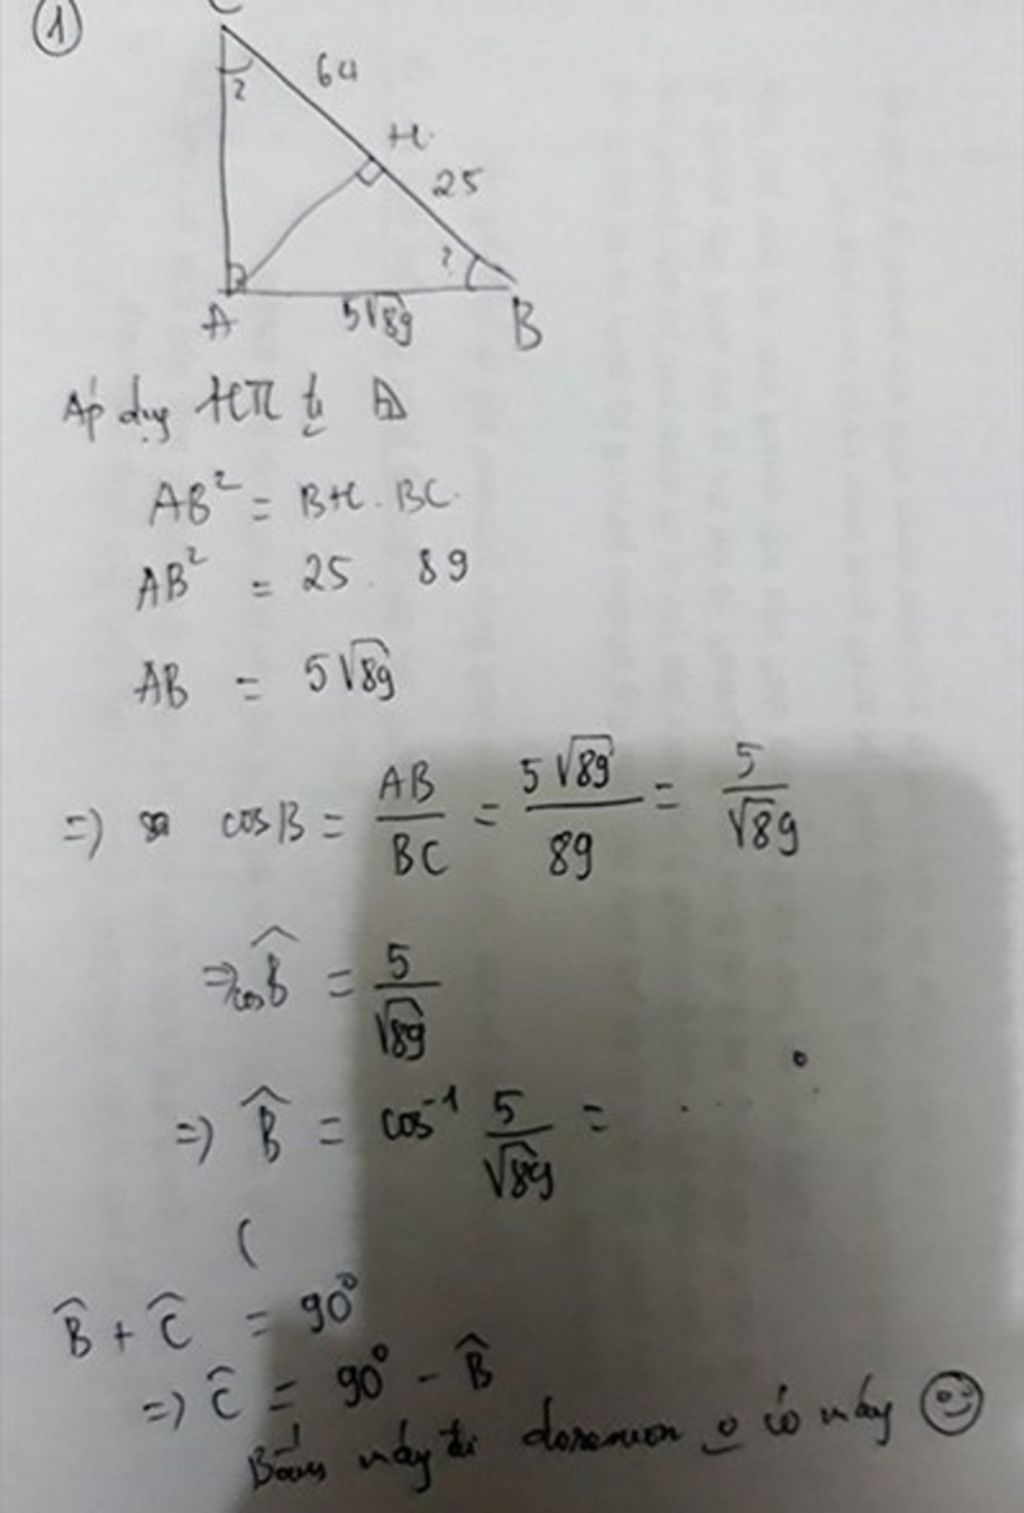 ①
C
64
?
H
25
?
A
5√89
B
Áp dụg HTL
AB² = BH . BC
AB² = 25 . 89
AB = 5√89
=> cosB = AB/BC = 5√89/89 = 5/√89
=> cosB̂ = 5/√89
=> B̂ = cos⁻¹ 5/√89 = ...
(
B̂ + Ĉ = 90°
=> Ĉ = 90° - B̂
Bấm máy đi doraemon o có máy